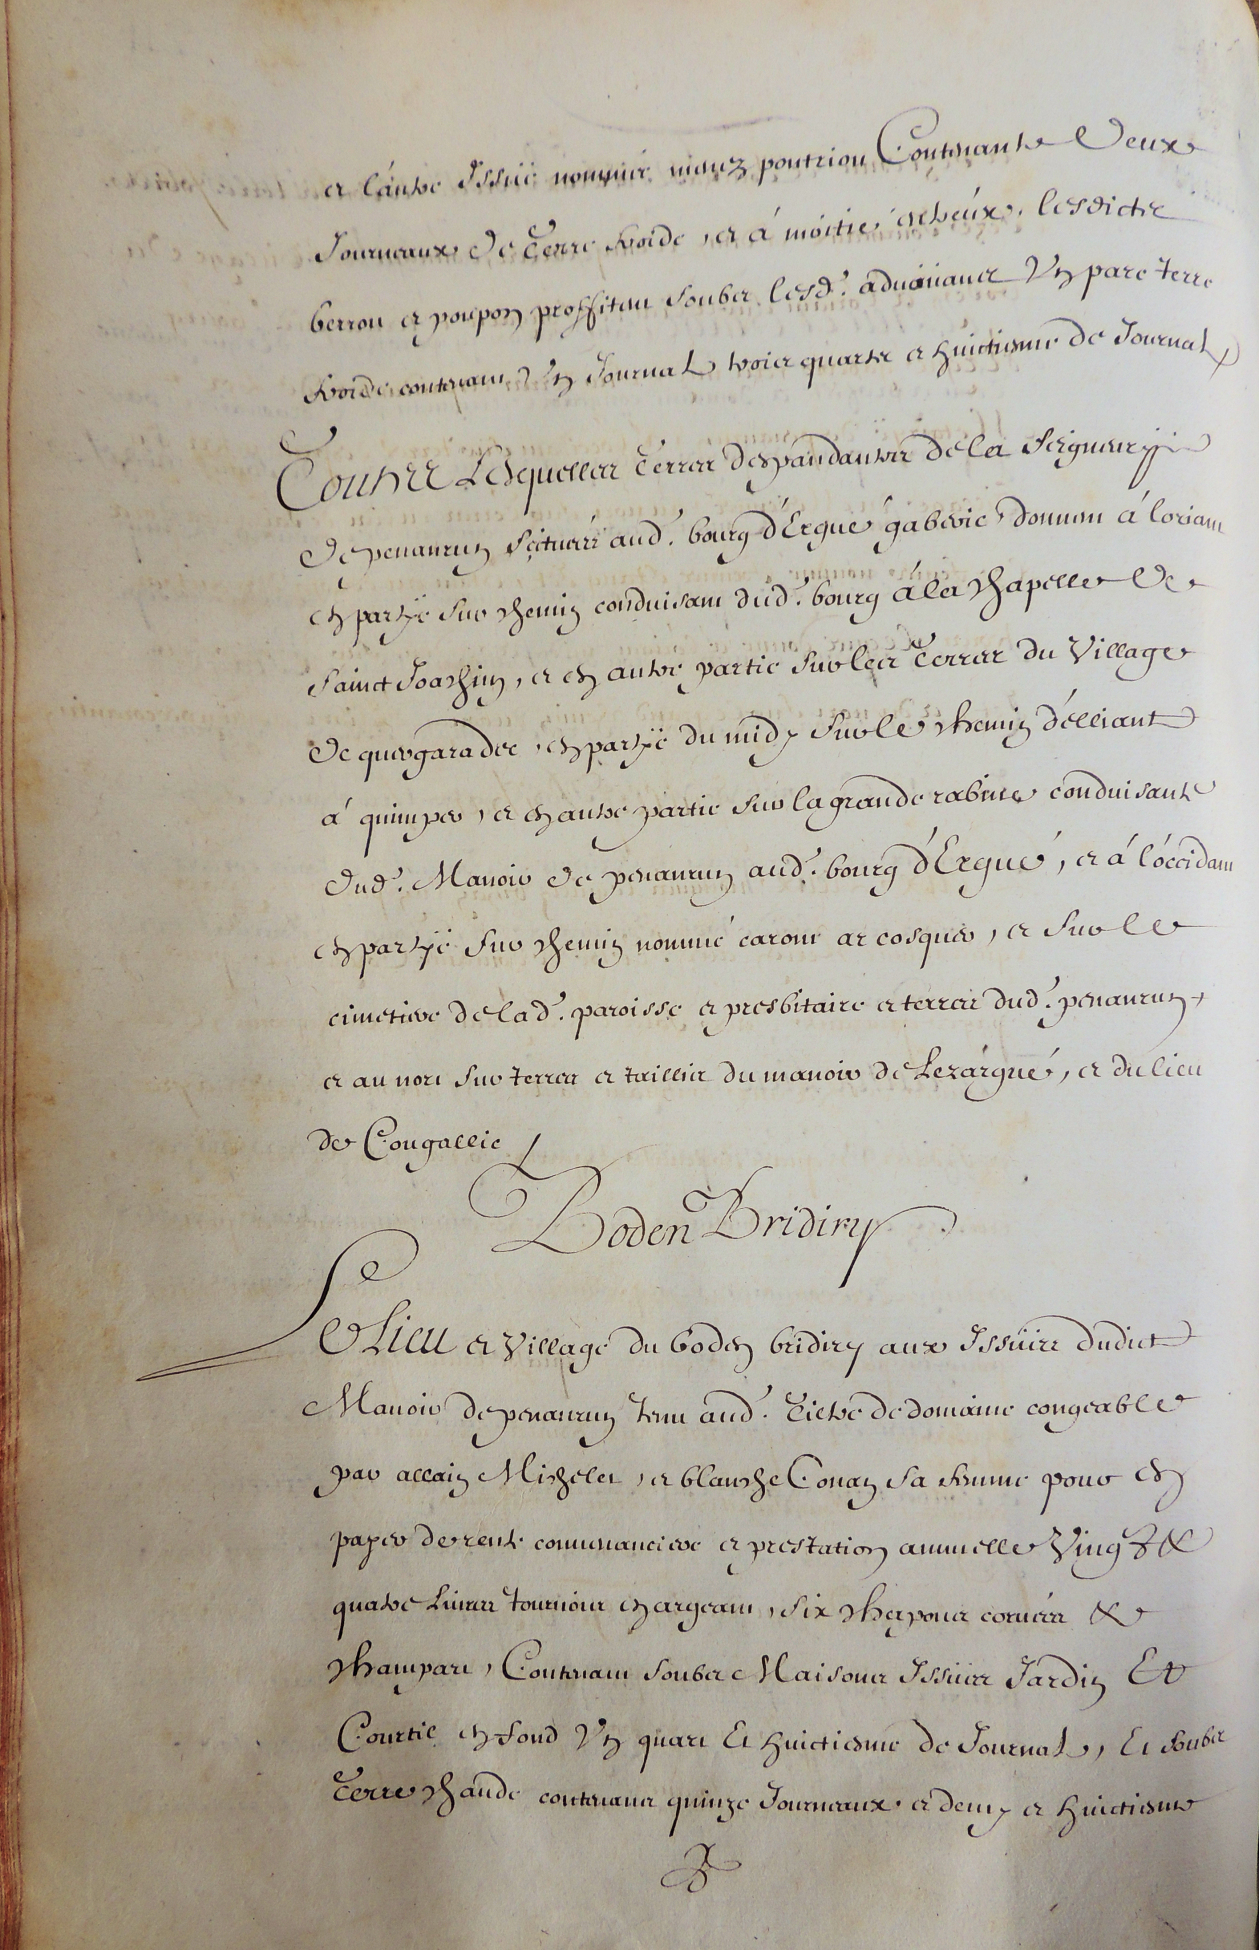 et l'autre Issüe nommée menez poutriou, Contenante Deux
Journeaux de Terre froide, et à moitié entr'eux. lesdicts
berrou et poupon proffitent soubz lesd. advoüants Un parc Terre
froide contenant Un Journal trois quarts et huictiesme de Journal
Toutes Lesquelles Terres despandantes de la seigneurye
de penanrun scituées aud. bourg d'Ergué gaberic donnent à lorient
en partye sur chemin conduisant dud. bourg à la chapelle de
sainct Joachim, et en autre partie sur les Terres du Village
de quergaradec, en partye du midy sur le chemin d'elliant
à quimper, et en autre partie sur la grande rabine conduisante
dud. Manoir de penanrun aud. bourg d'Ergué, et à l'occidant
en partye sur chemin nommé caront ar cosquer, et sur le
cimetiere de lad. paroisse et presbitaire et terres dud. penanrun,
et au nort sur terres et taillis du manoir de Lezergué, et du lieu
de Congallic /
Boden Bridiry
Le Lieu et Village du boden bridiry aux Issües dudict
Manoir de penanrun tenu aud. Tiltre de domaine congeable
par allain Michelet, et blanche Conan sa femme pour en
payer de rente convenanciere et prestation annuelle Vingt &
quatre Livres tournois en argeant, six chapons corvées &
champart, Contenant soubz Maisons Issües Jardin Et
Courtil en fond Un quart Et huictiesme de Journal, Et soubz
Terre chaude contenant quinze Journeaux et demy et huictiesme